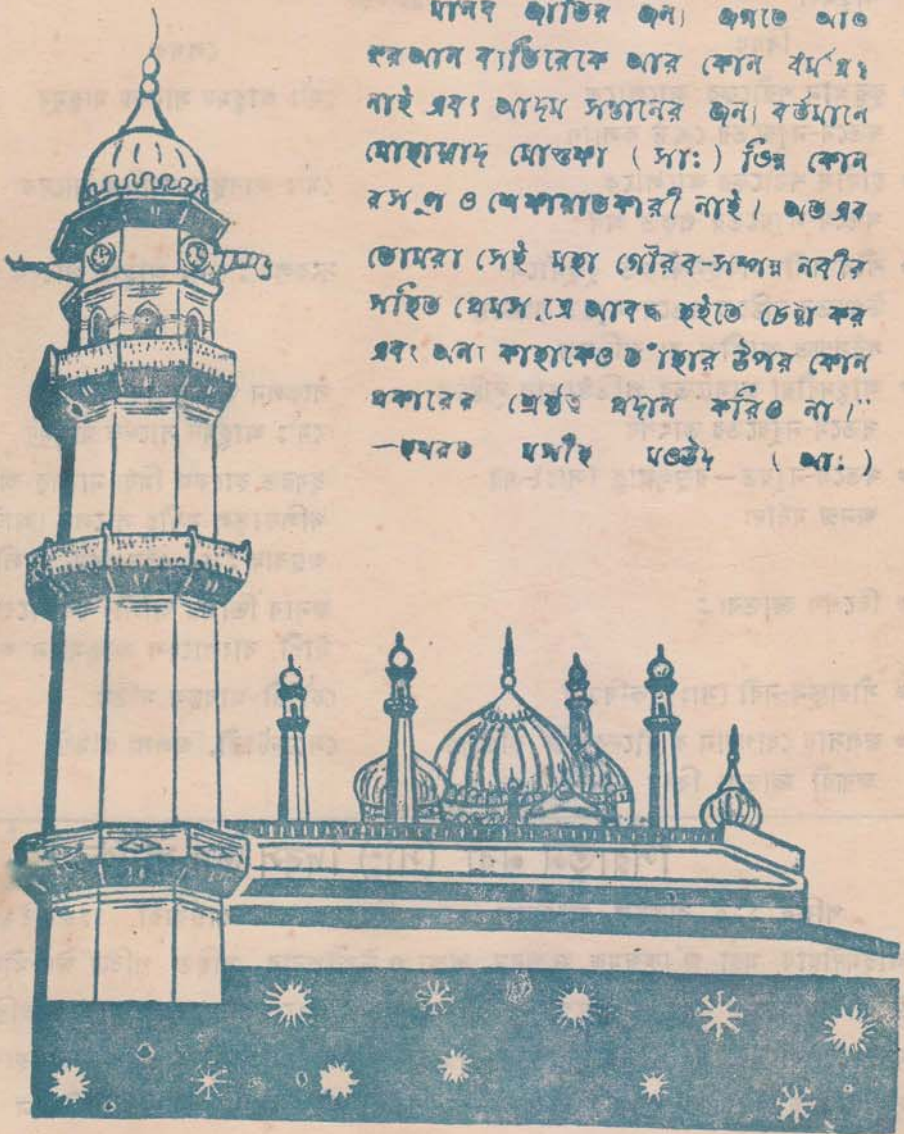 মানব জাতির জন্য জগতে আজ
কুরআন ব্যতিরেকে আর কোন ধর্ম গ্রন্থ
নাই এবং আদম সন্তানের জন্য বর্তমানে
মোহাম্মাদ মোস্তফা ( সাঃ ) ভিন্ন কোন
রসূল ও শেফায়াতকারী নাই। অতএব
তোমরা সেই মহা গৌরব-সম্পন্ন নবীর
সহিত প্রেমসূত্রে আবদ্ধ হইতে চেষ্টা কর
এবং অন্য কাহাকেও তাঁহার উপর কোন
প্রকারের শ্রেষ্ঠত্ব প্রদান করিও না।"
—হযরত মসীহ মওউদ ( আঃ )